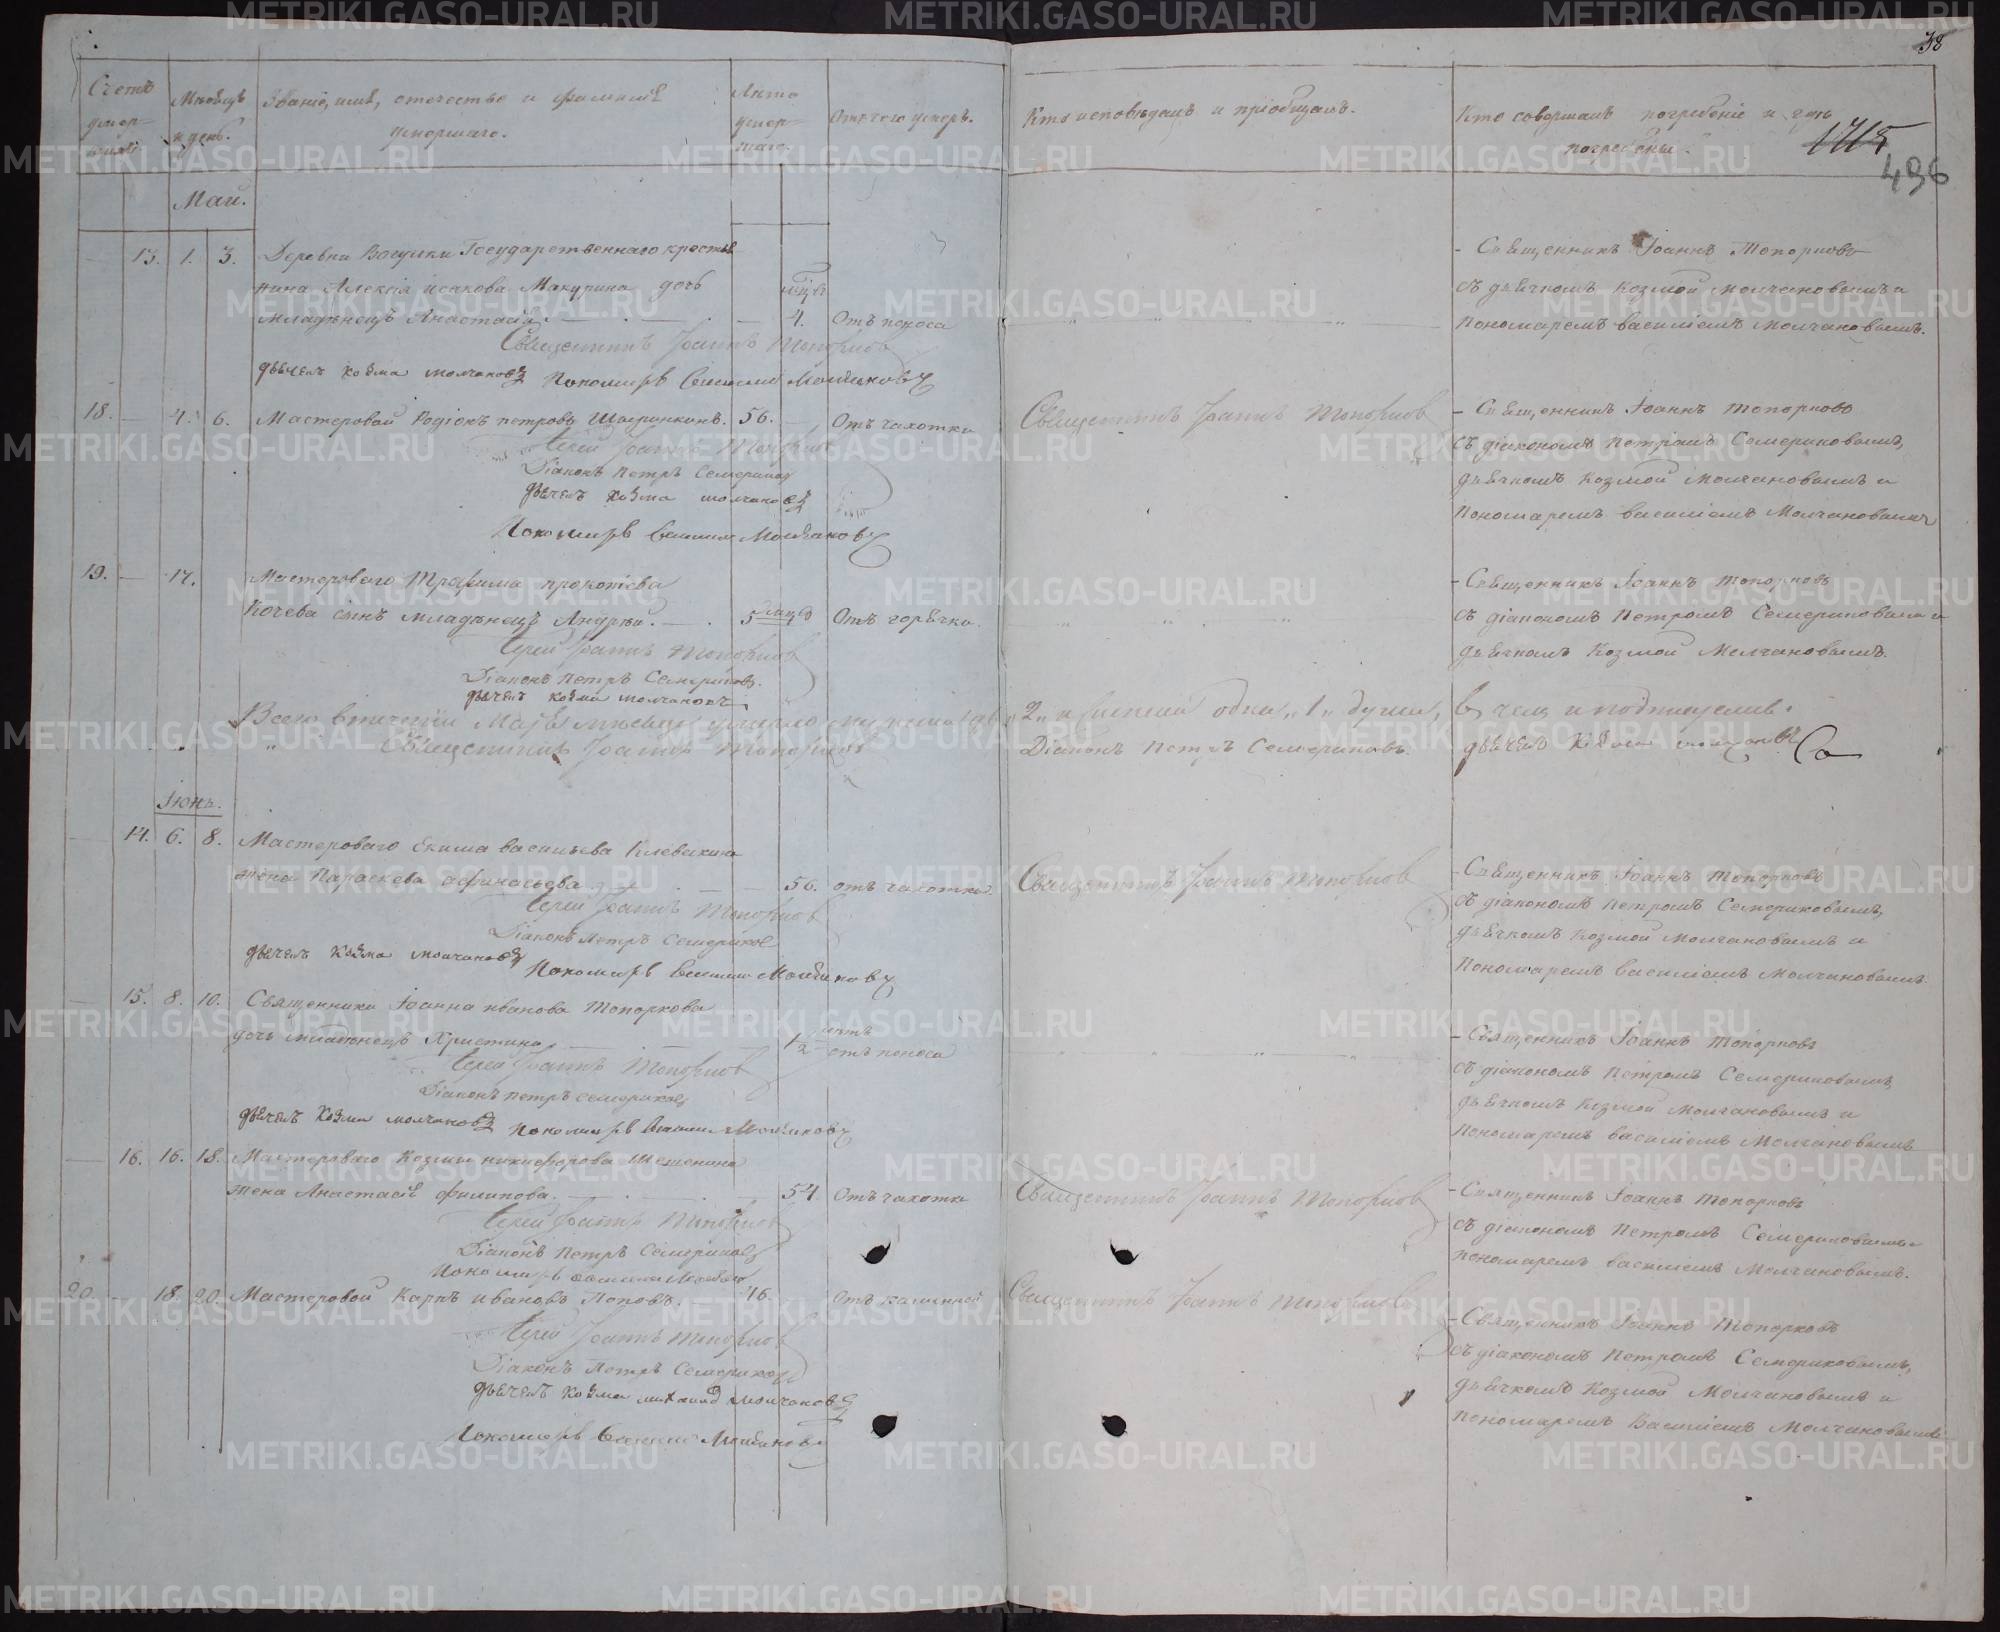 38
1715
496
Счетъ умер-шихъ.
Мѣсяцъ и день.
Званіе, имя, отечество и фамилія умершаго.
Лѣта умер-шаго.
Отъ чего умеръ.
Кто исповѣдалъ и пріобщалъ.
Кто совершалъ погребеніе и гдѣ погребены.
Май.
13. 1. 3. Деревни Государственнаго крестья
нина Алексія Исакова Макурина дочь
младѣнецъ Анастасія. 4. Отъ поноса
Священникъ Іоаннъ Топорковъ
дьячекъ Козма молчановъ Пономарь Василій Молчановъ
- Священникъ Іоаннъ Топорковъ
съ дьячкомъ Козмой Молчановымъ и
Пономаремъ Василіемъ Молчановымъ.
18. 4. 6. Мастеровой Родіонъ петровъ 56. Отъ чахотки
Іерей Іоаннъ Топорковъ
Діаконъ Петръ Семериковъ
дьячекъ Козма молчановъ
Пономарь Василій Молчановъ
Священникъ Іоаннъ Топорковъ
- Священникъ Іоаннъ Топорковъ
съ діакономъ Петромъ Семериковымъ,
дьячкомъ Козмой Молчановымъ и
Пономаремъ Василіемъ Молчановымъ
19. 17. Мастероваго Трафима прокопіева
Кочева сынъ младѣнецъ Андрѣй. 5 Отъ горячки.
Іерей Іоаннъ Топорковъ
Діаконъ Петръ Семериковъ.
дьячекъ Козма молчановъ
- Священникъ Іоаннъ Топорковъ
съ діакономъ Петромъ Семериковымъ и
дьячкомъ Козмой Молчановымъ.
Всего втеченіи Маія мѣсяца умерло мужеска "2" и женска одна "1" душа, въ чемъ и подписуемся.
Священникъ Іоаннъ Топорковъ Діаконъ Петръ Семериковъ. дьячекъ Козма молчановъ
Іюнь.
14. 6. 8. Мастероваго Екима Васильева Клевакина
жена Параскева афанасьева. 56. отъ чахотки.
Іерей Іоаннъ Топорковъ
Діаконъ Петръ Семериковъ
дьячекъ Козма молчановъ Пономарь Василій Молчановъ
Священникъ Іоаннъ Топорковъ
- Священникъ Іоаннъ Топорковъ
съ діакономъ Петромъ Семериковымъ,
дьячкомъ Козмой Молчановымъ и
Пономаремъ Василіемъ Молчановымъ.
15. 8. 10. Священника Іоанна иванова Топоркова
дочь младѣнецъ Христина 1/2 отъ поноса
Іерей Іоаннъ Топорковъ
Діаконъ Петръ Семериковъ
дьячекъ Козма молчановъ Пономарь Василій Молчановъ
- Священникъ Іоаннъ Топорковъ
съ діакономъ Петромъ Семериковымъ,
дьячкомъ Козмой Молчановымъ и
Пономаремъ Василіемъ Молчановымъ
16. 16. 18. Мастероваго Козмы никифорова
жена Анастасія филипова. 54. Отъ чахотки
Іерей Іоаннъ Топорковъ
Діаконъ Петръ Семериковъ
Пономарь Василій Молчановъ
Священникъ Іоаннъ Топорковъ
- Священникъ Іоаннъ Топорковъ
съ діакономъ Петромъ Семериковымъ и
пономаремъ Василіемъ Молчановымъ.
20. 18. 20. Мастеровой Карпъ ивановъ Поповъ. Отъ
Іерей Іоаннъ Топорковъ
Діаконъ Петръ Семериковъ
дьячекъ Козма молчановъ
Пономарь Василій Молчановъ
Священникъ Іоаннъ Топорковъ
- Священникъ Іоаннъ Топорковъ
съ діакономъ Петромъ Семериковымъ,
дьячкомъ Козмой Молчановымъ и
пономаремъ Василіемъ Молчановымъ
METRIKI.GASO-URAL.RU